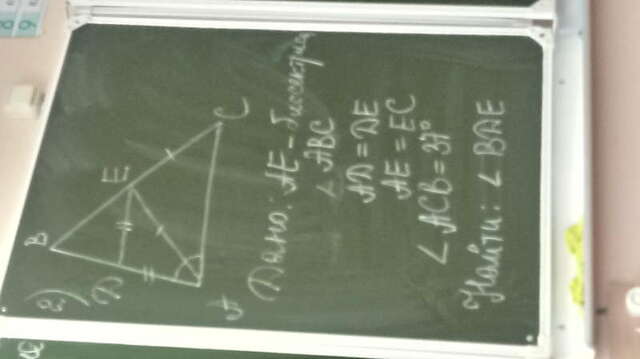 2)
B
D
E
A
C
Дано: AE - биссектриса
∠ ABC
AD = DE
AE = EC
∠ ACB = 37°
Найти: ∠ BDE
8
9